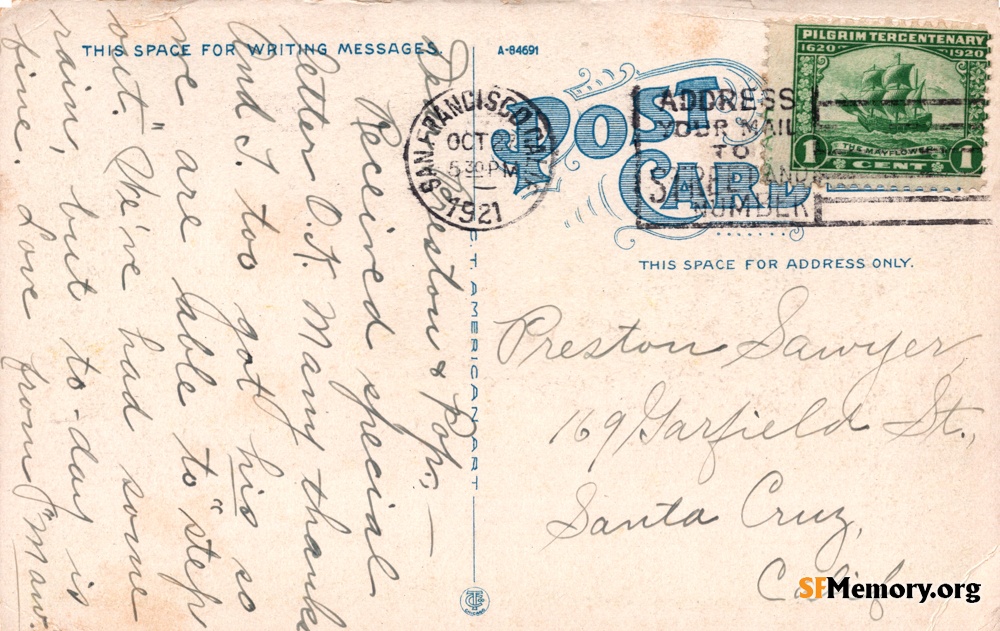 THIS SPACE FOR WRITING MESSAGES.
A-84691
POST CARD
THIS SPACE FOR ADDRESS ONLY.
PILGRIM TERCENTENARY
1620 1920
THE MAYFLOWER
1 CENT 1
SAN FRANCISCO
OCT
5 30 PM
1921
ADDRESS
YOUR MAIL
TO
STREET AND
NUMBER
Dear Preston & Pop:—
Received special
letter O.K. Many thanks
And I too got his so
we are able to "step
out." We've had some
rain, but to-day is
fine. Love from "Maw."
C.T. AMERICAN ART
Preston Sawyer,
169 Garfield St.,
Santa Cruz,
Calif
SFMemory.org